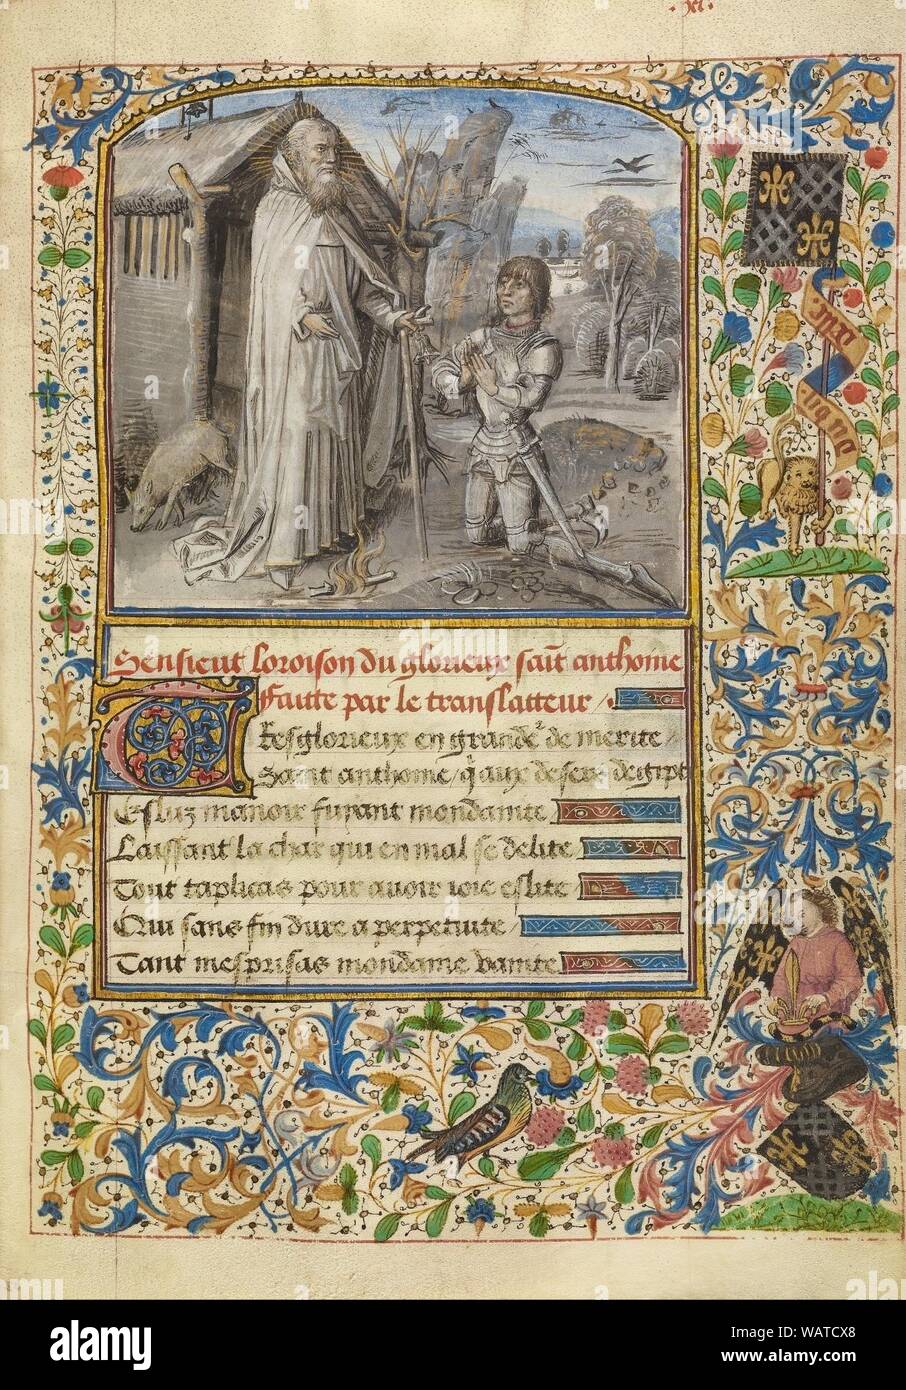 Sensieut loroison du glorieux sait anthoine
Faitte par le translatteur
Tresglorieux en grande de merite
Saint anthoine / q aux desers degipte
Esluz manoir fuyant mondanite
Laissant la char qui en mal se delite
Tout taplicas pour avoir ioie eslite
Qui sans fin dure a perpetuite
Tant mesprisas mondaine vanite
alamy
Image ID: WATCX8
www.alamy.com